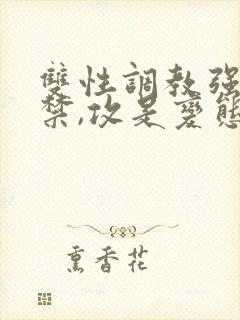 雙性調教强
禁,攻是變態
熏香花